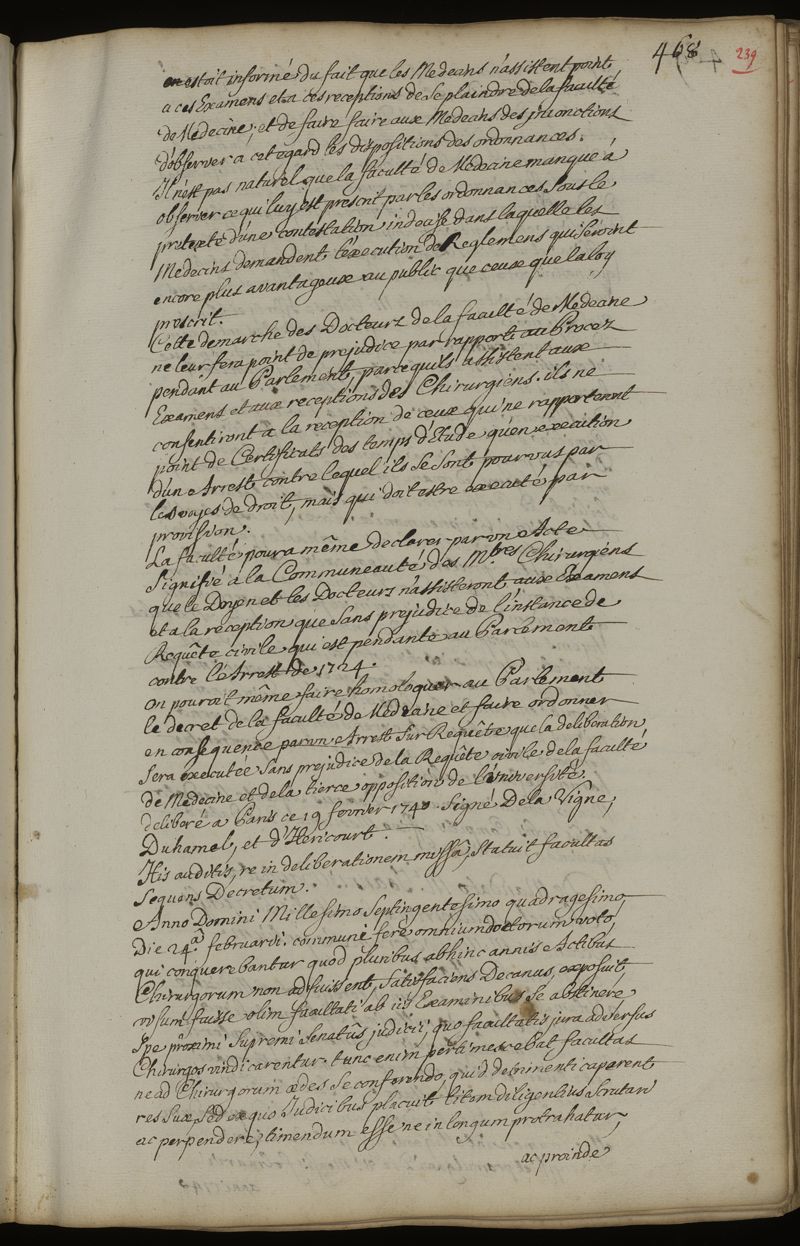 468 239
en estoit informé du fait que les Medecins n'assistent point
a ces Examens et a ces receptions de se plaindre de la faculté
de Medecine, et de faire faire aux Medecins des injonctions
d'observer a cet egard les dispositions des ordonnances.
Il n'est pas naturel que la faculté de Medecine manque à
observer ce qui luy est prescrit par les ordonnances sous le
pretexte d'une contestation indecise dans laquelle les
Medecins demandent l'execution de Reglemens qui seroient
encore plus avantageux au public que ceux que la loy
prescrit.
Cette demarche des Docteurs de la faculté de Medecine
ne leur fera point de prejudice par rapport au Procez
pendant au Parlement, parce qu'ils assistent aux
Examens et aux receptions des Chirurgiens. ils ne
consentiront a la reception de ceux qui ne rapporteront
point de Certificats des temps d'Etude qu'en execution
d'un Arrest contre lequel ils se sont pourvus par
les voyes de droit, mais qui doit estre executé par
provision.
La faculté poura même declarer par un Acte
signifié a la Communeauté des Mtres Chirurgiens
que le Doyen et les Docteurs n'assisteront aux Examens
et a la reception que sans prejudice de l'instance de
Requête civile qui est pendante au Parlement
contre l'Arrest de 1724.
on pouroit même faire homologuer au Parlement
le decret de la faculté de Medecine et faire ordonner
en consequence par un Arrest sur Requêtre que la deliberation
sera executée sans prejudice de la Requête civile de la faculté
de Medecine et de la tierce opposition de l'université.
deliberé a Paris ce 19 fevrier 1740. Signé De la Vigne,
Duhamel, et d'Hericourt.
His auditis, re in deliberationem missâ, statuit facultas
sequens Decretum.
Anno Domini Millesimo Septingentesimo quadragesimo,
Die 24.a februarii. communi ferè omnium doctorum voto,
qui conquerebantur quod pluribus abhinc annis Actibus
Chirurgorum non adfuissent, satisfaciens Decanus, exposuit,
visum fuisse olim facultati ab iis Examinibus se abstinere
spe proximi supremi senatûs judicii, quo facultatis jura adversus
Chirurgos vindicarentur. tunc enim pertimescebat facultas
ne ad Chirurgorum ædes se conferendo, quid detrimenti caperent
res suæ, sed ex quo Judicibus placuit litem diligentius scrutari
ac perpendere, timendum esse ne in longum protrahatur,
ac proinde